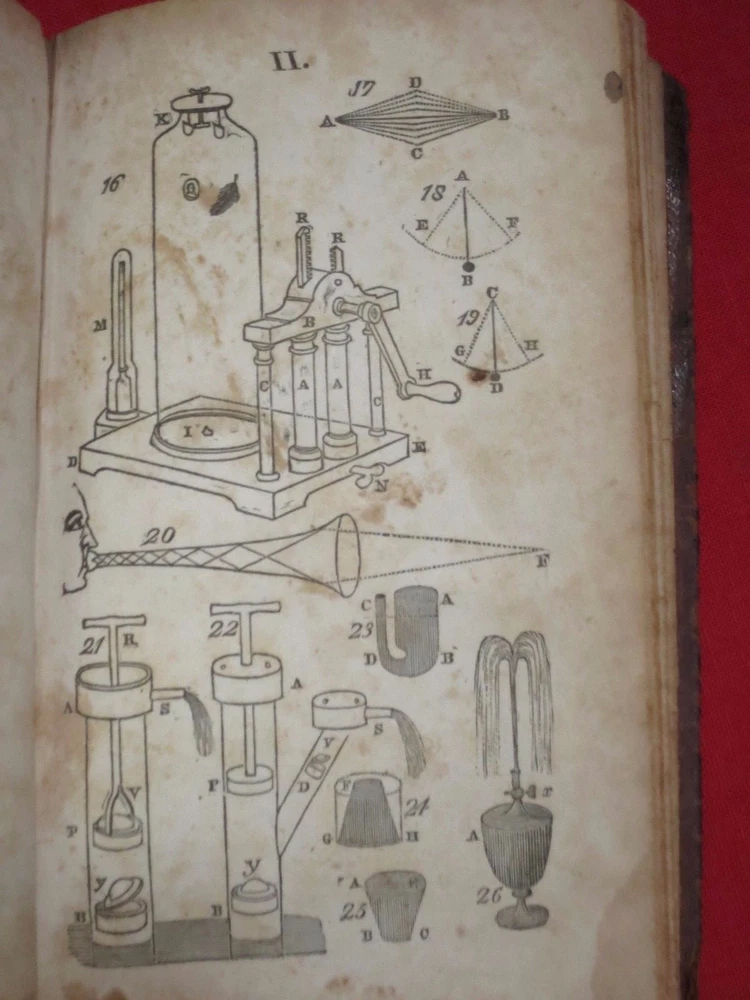 II.
17
D
A
B
C
K
16
18
A
E
F
B
R
R
M
B
19
C
G
H
D
C
A
A
C
H
I
D
E
N
20
F
21
R
22
23
C
A
D
B
A
S
A
V
S
V
D
P
P
F
24
G
H
x
A
y
y
B
B
A
25
B
C
26